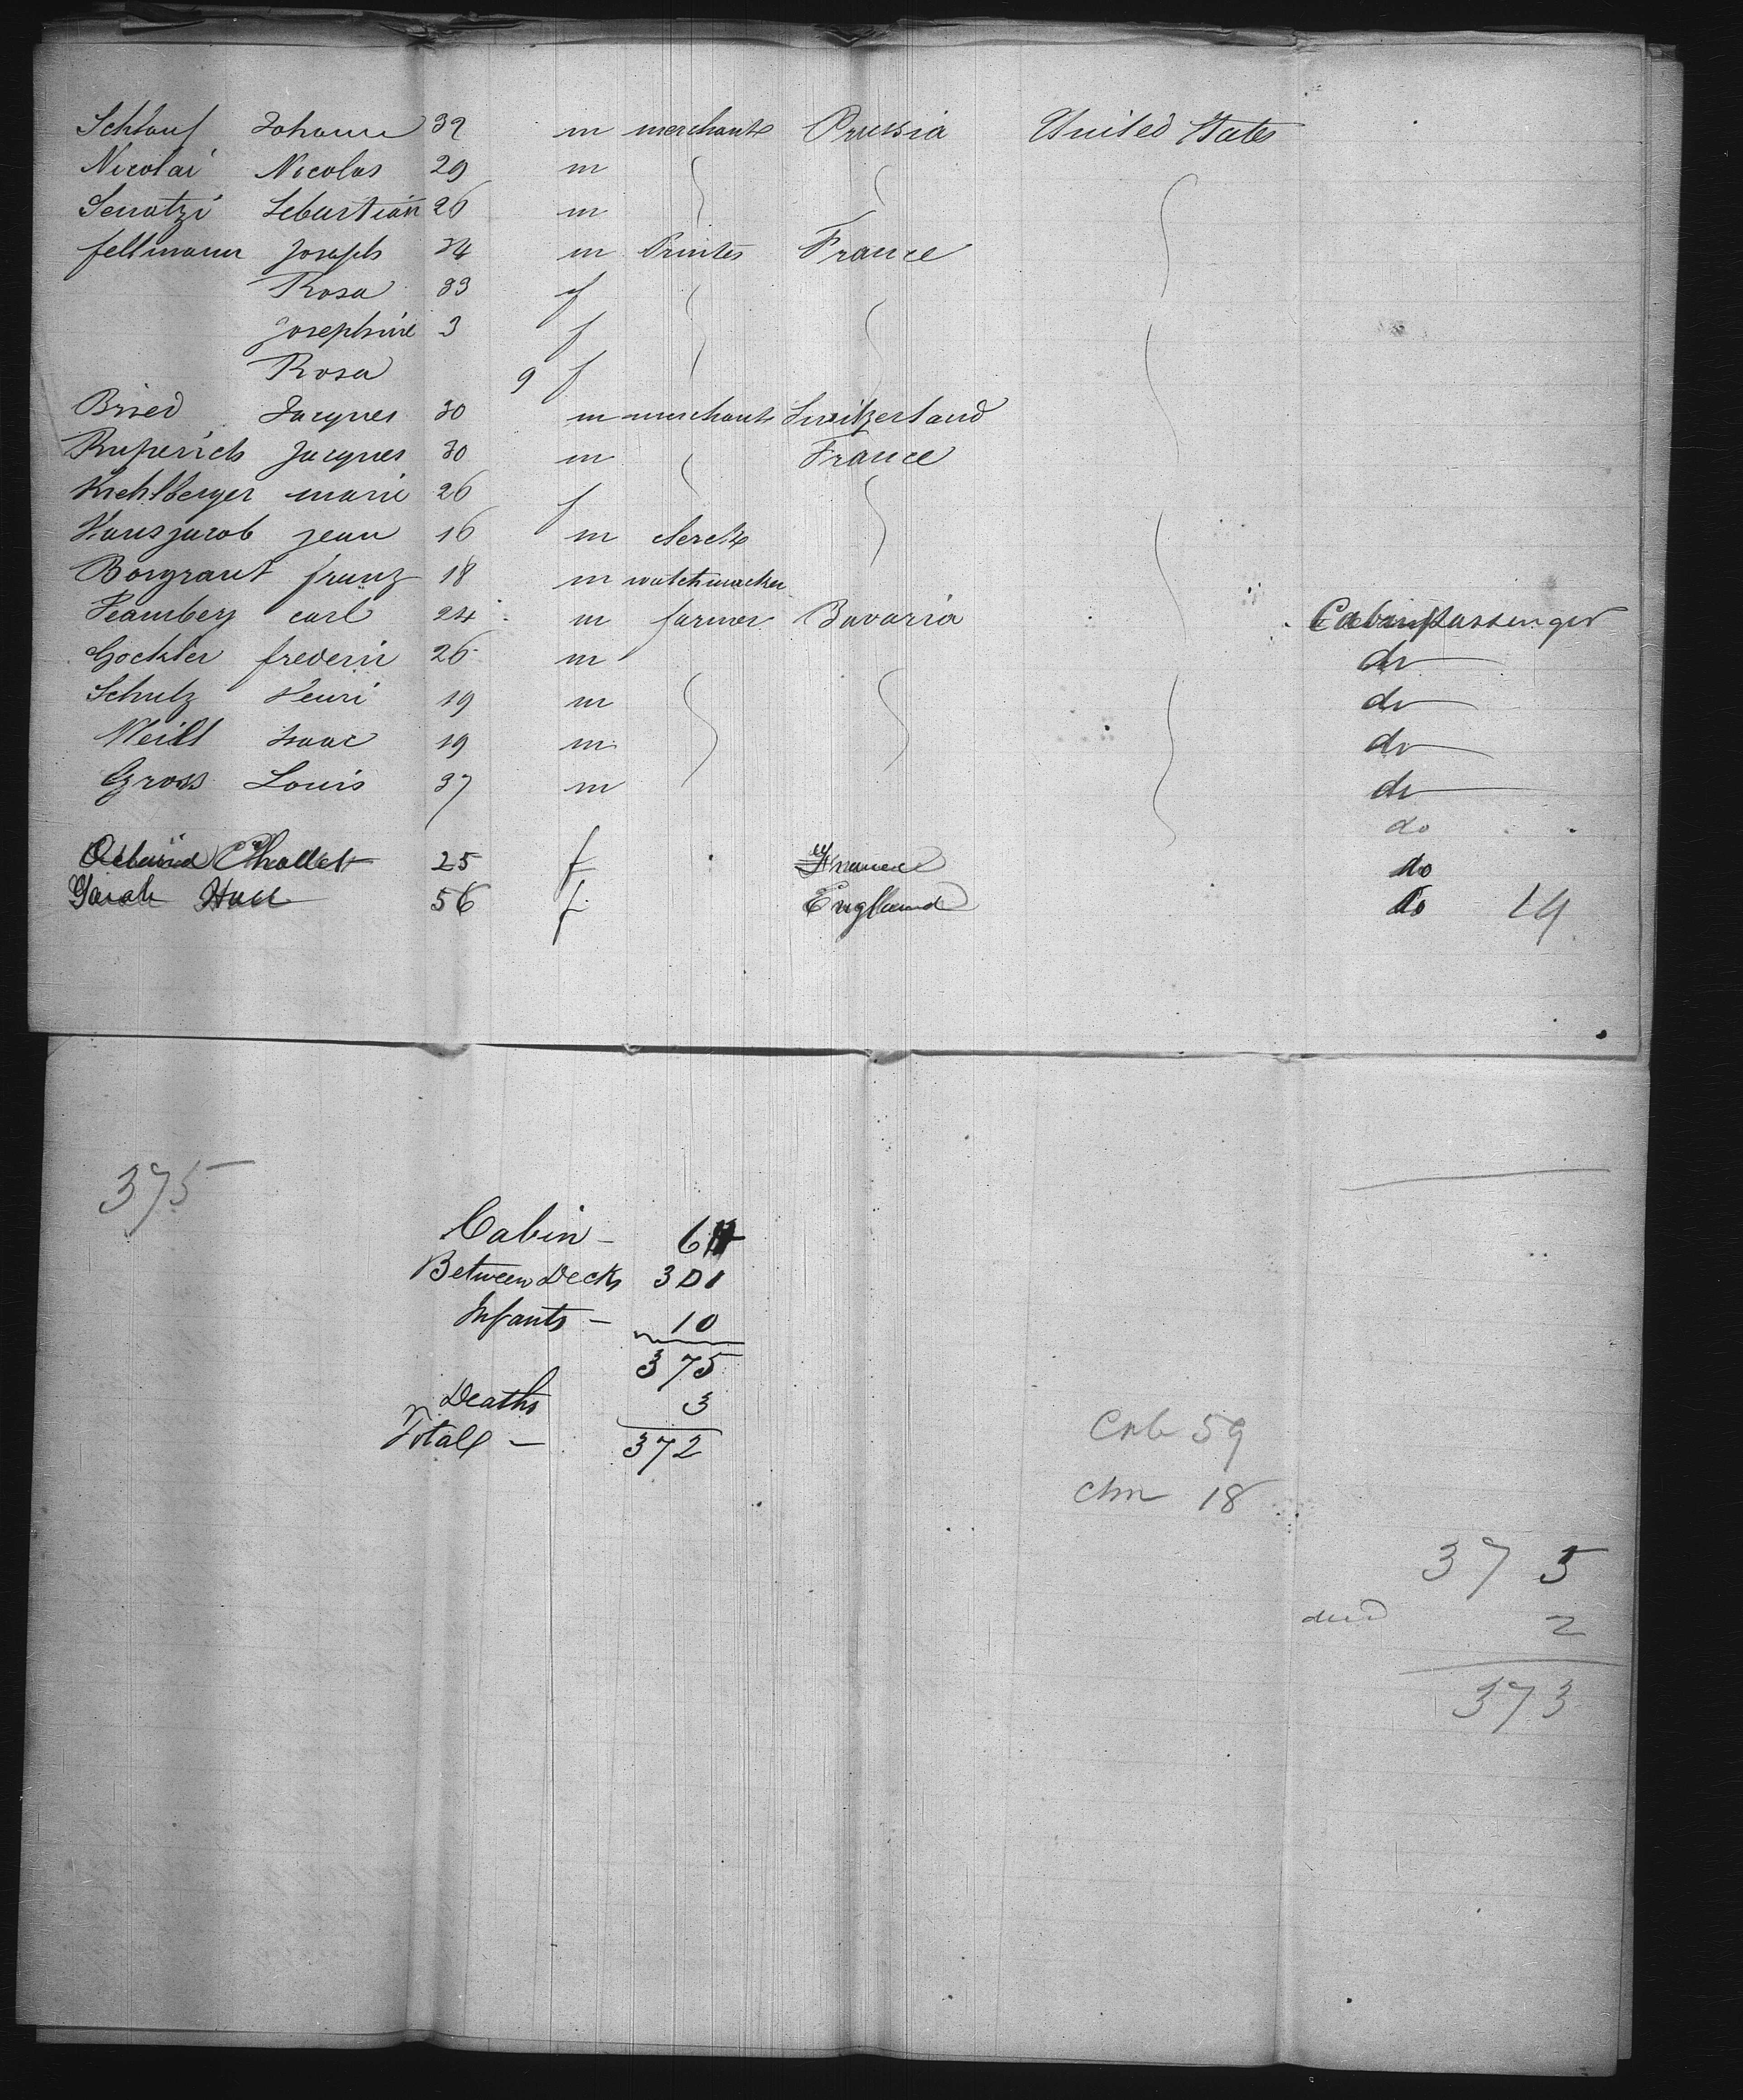 Schlauf Johann 32 m merchant Prussia United States
Nicolai Nicolas 29 m
Senatzi Sebastian 26 m
fellmann Joseph 34 m Printer France
Rosa 33 f
Josephine 3 f
Rosa 9 f
Bried Jacques 30 m merchant Switzerland
Ruperich Jacques 30 m France
marie 26 f
Hansjacob jean 16 m clerck
Borgrant franz 18 m watchmacker
carl 24 m farmer Bavaria Cabin passenger
Gockler frederic 26 m do
Schulz Henri 19 m do
Weill Isaac 19 m do
Gross Louis 37 m do
do
Chollet 25 f France do
Sarah Hall 56 f England do 14
375
Cabin - 64
Between Decks 301
Infants - 10
375
Deaths 3
Total - 372
Cab 59
chn 18
375
died 2
373